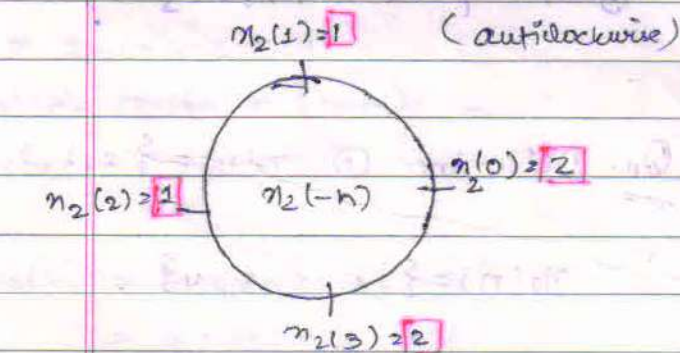 x₂(1)=1 (anticlockwise)
x₂(0)=2
x₂(2)=1 x₂(-n)
x₂(3)=2